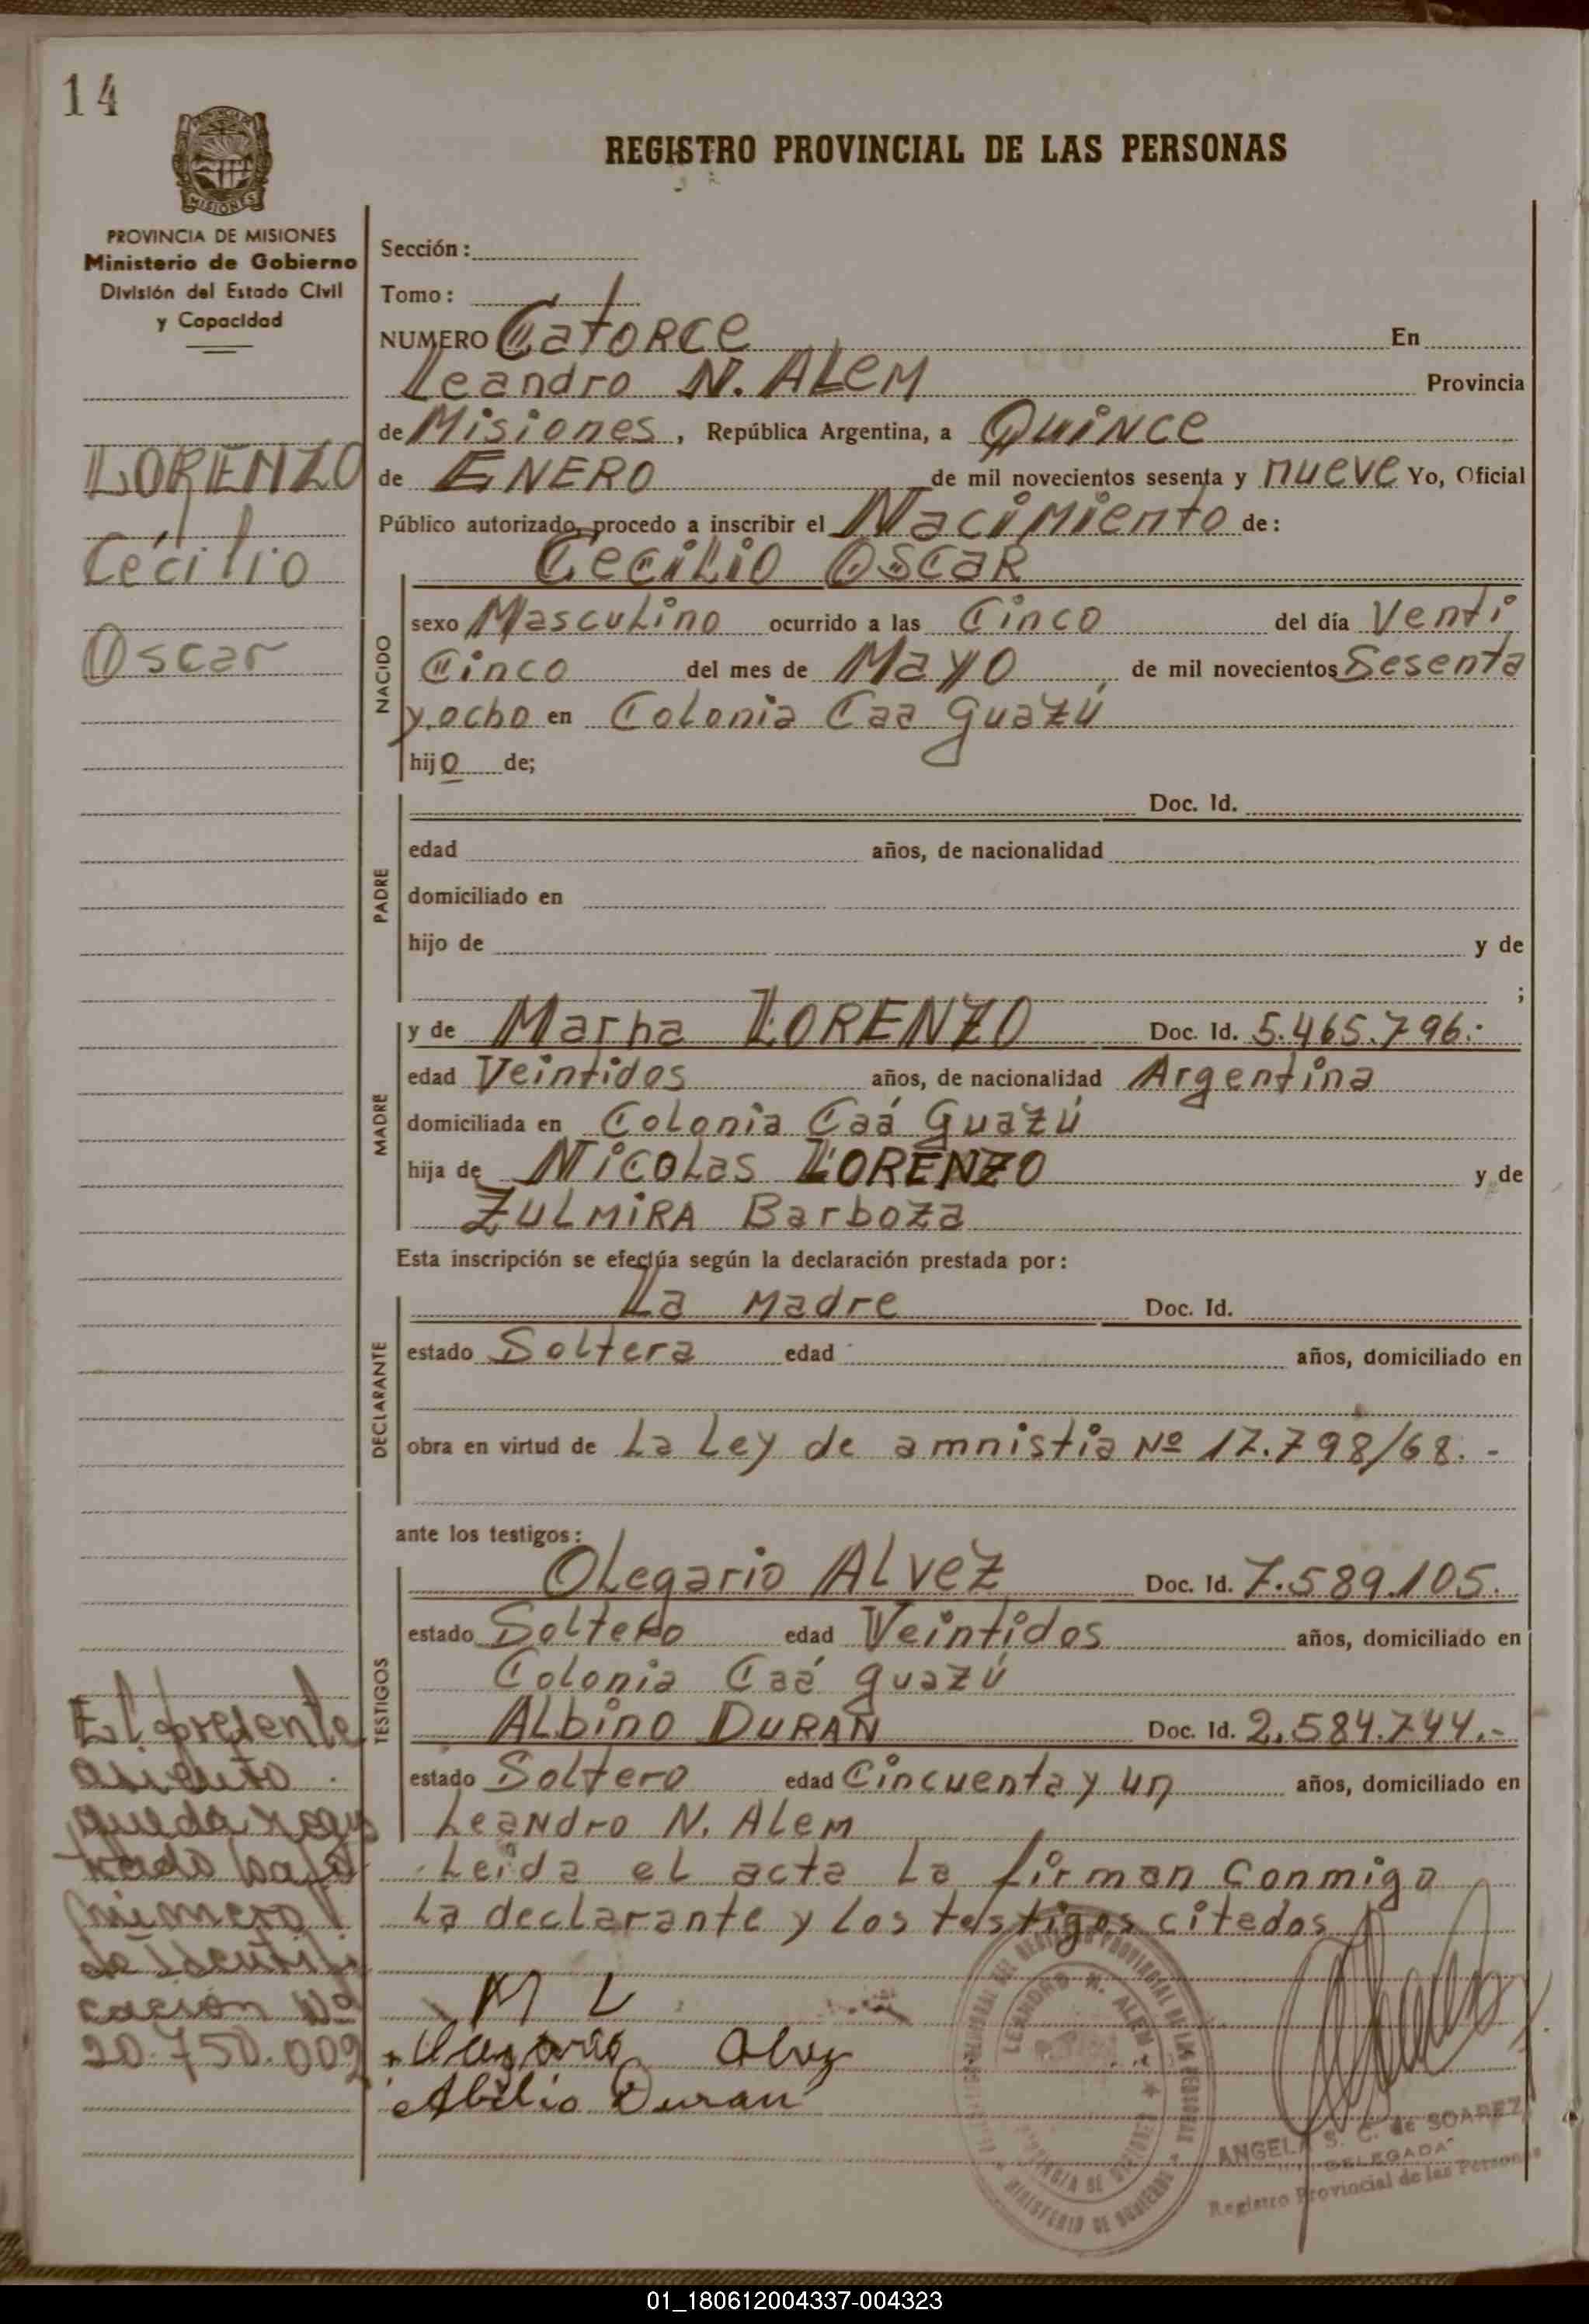 14
MISIONES
REGISTRO PROVINCIAL DE LAS PERSONAS
PROVINCIA DE MISIONES
Ministerio de Gobierno
División del Estado Civil
y Capacidad
LORENZO
Cecilio
Oscar
Sección:
Tomo:
NUMERO Catorce En
Leandro N. ALEM Provincia
de Misiones, República Argentina, a Quince
de ENERO de mil novecientos sesenta y nueve Yo, Oficial
Público autorizado, procedo a inscribir el Nacimiento de:
Cecilio Oscar
NACIDO
sexo Masculino ocurrido a las Cinco del día Venti
Cinco del mes de Mayo de mil novecientos Sesenta
y ocho en Colonia Caa Guazú
hijo de;
PADRE
Doc. Id.
edad años, de nacionalidad
domiciliado en
hijo de y de
;
MADRE
y de Marha LORENZO Doc. Id. 5.465.796.
edad Veintidos años, de nacionalidad Argentina
domiciliada en Colonia Caá Guazú
hija de Nicolas LORENZO y de
ZULMIRA Barboza
Esta inscripción se efectúa según la declaración prestada por:
DECLARANTE
La Madre Doc. Id.
estado Soltera edad años, domiciliado en
obra en virtud de La Ley de amnistia Nº 17.798/68.-
ante los testigos:
TESTIGOS
Olegario ALVEZ Doc. Id. 7.589.105.
estado Soltero edad Veintidos años, domiciliado en
Colonia Caá guazú
Albino DURAN Doc. Id. 2.584.744.-
estado Soltero edad Cincuenta y un años, domiciliado en
Leandro N. Alem
Leida el acta la firman conmigo
la declarante y los testigos citados
El presente
asiento
queda regis
trado bajo
número
de Identifi
cación Nº
20.750.009
M L
Olegario Alvez
Abilio Duran
LEANDRO N. ALEM
PROVINCIA DE MISIONES
MINISTERIO DE GOBIERNO
ANGELA S. C. de SOAREZ
DELEGADA
Registro Provincial de las Personas
01_180612004337-004323